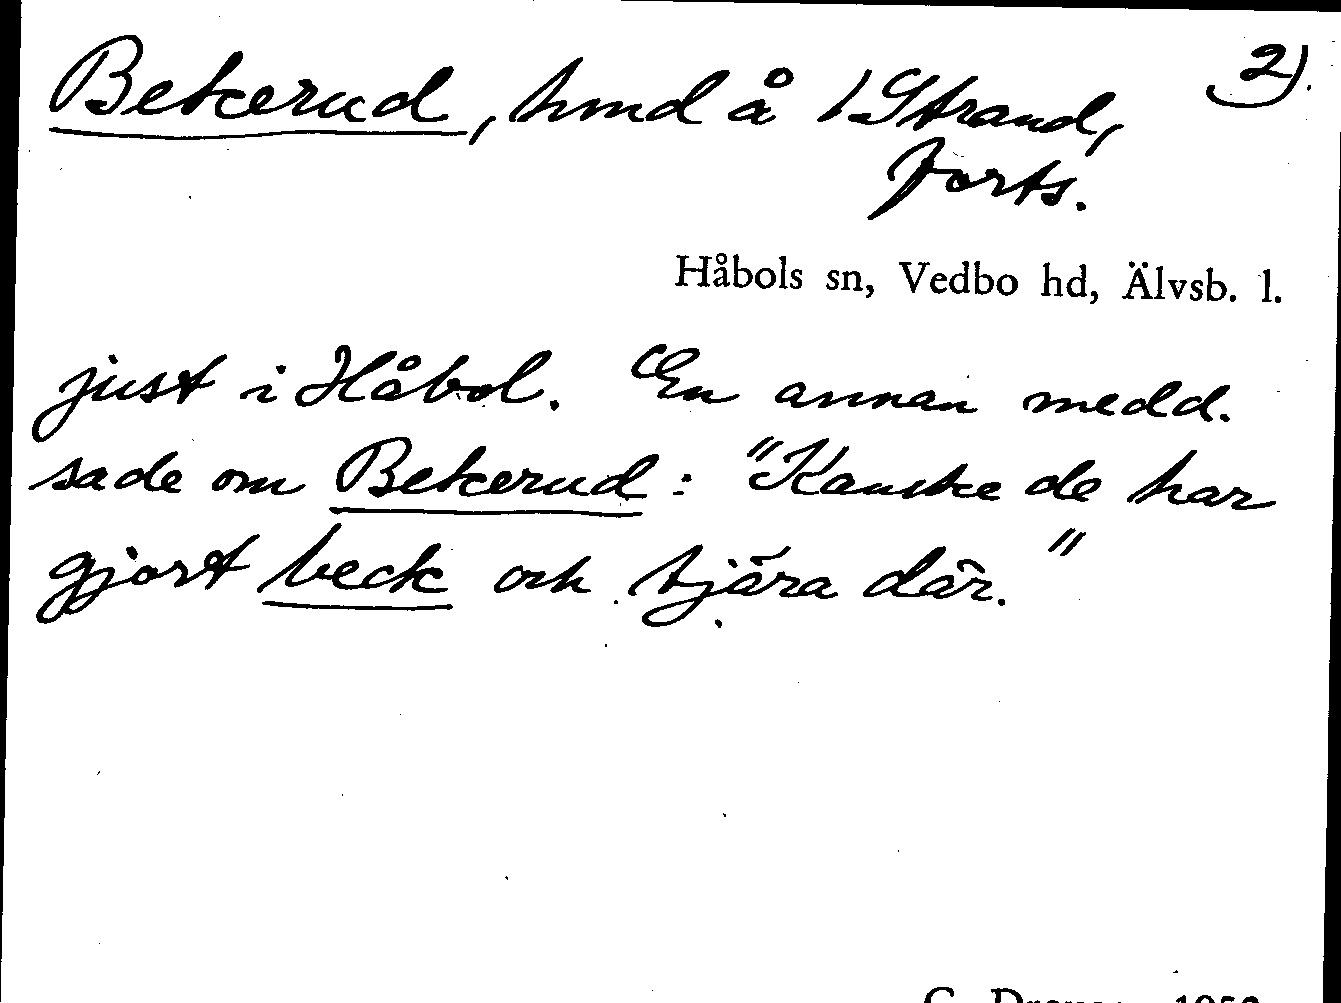 Bekerud, hmd å 1 Strand, 2).
forts.
Håbols sn, Vedbo hd, Älvsb. l.
just i Håbol. En annan medd.
sade om Bekerud: "Kanske de har
gjort beck och tjära där."